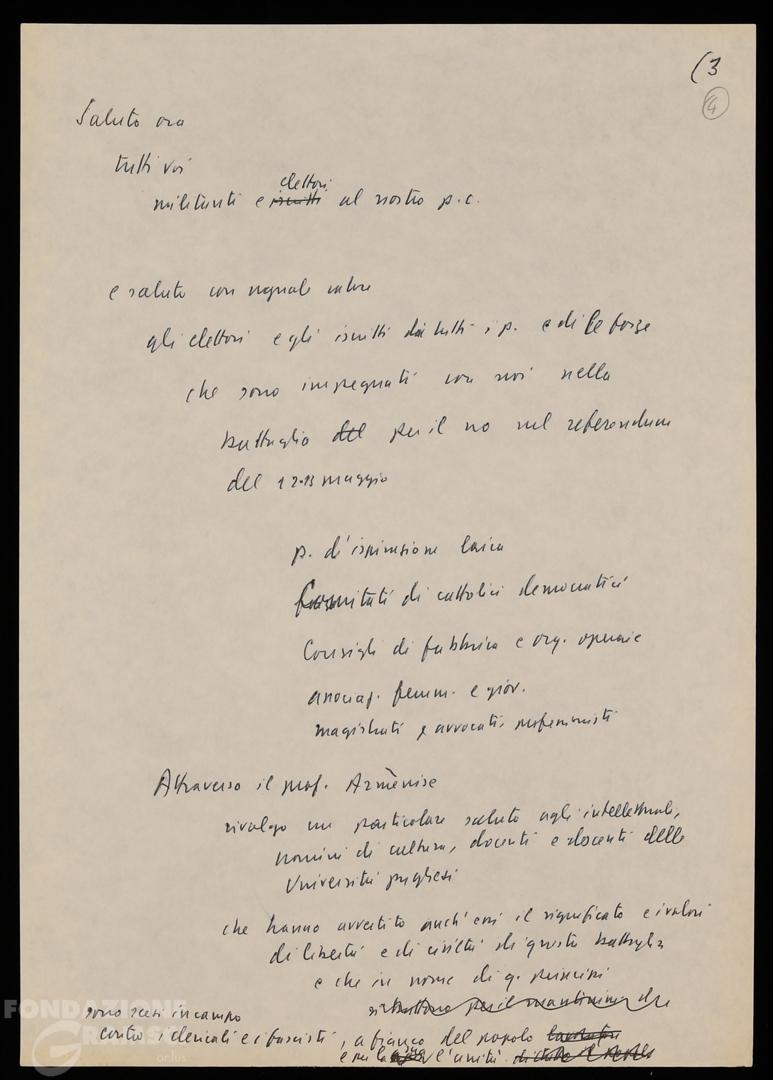 (3
4
Saluto ora
tutti voi
militanti e iscritti elettori al nostro p.c.
e saluto con uguale calore
gli elettori e gli iscritti di tutti i p. e di le forze
che sono impegnati con noi nella
battaglia del per il no nel referendum
del 12-13 maggio
p. di ispirazione laica
Comitati di cattolici democratici
Consigli di fabbrica e org. operaie
associaz. femm. e giov.
magistrati e avvocati, professionisti
Attraverso il prof. Armènise
rivolgo un particolare saluto agli intellettuali,
uomini di cultura, docenti e docenti delle
Università pugliesi
che hanno avvertito anch'essi il significato e i valori
di libertà e di civiltà di questa battaglia
e che in nome di q. principi
si battono per il mantenimento
sono scesi in campo
contro i clericali e i fascisti, a fianco del popolo
e per l'unità
FONDAZIONE
GRAMSCI
onlus